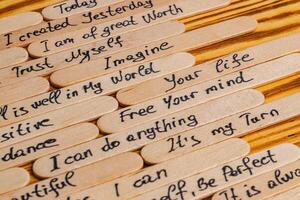 Today
I created Yesterday
I am of great Worth
Trust Myself
Imagine
is well in my World
Your life
Free your mind
dance
I can do anything
It's my Turn
I can
Be Perfect
It is